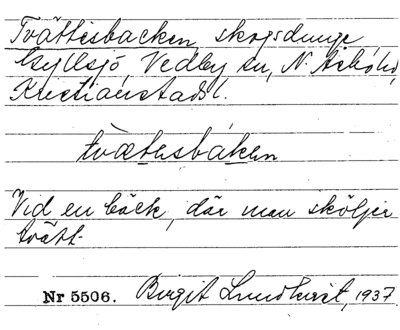 Tvättesbacken, skogsdunge
Gyllsjö, Vedby sn, N. Åsbo hd,
Kristianstads l.
tvætesbakən
Vid en bäck, där man sköljer
tvätt.
Nr 5506. Birgit Lundkvist, 1937